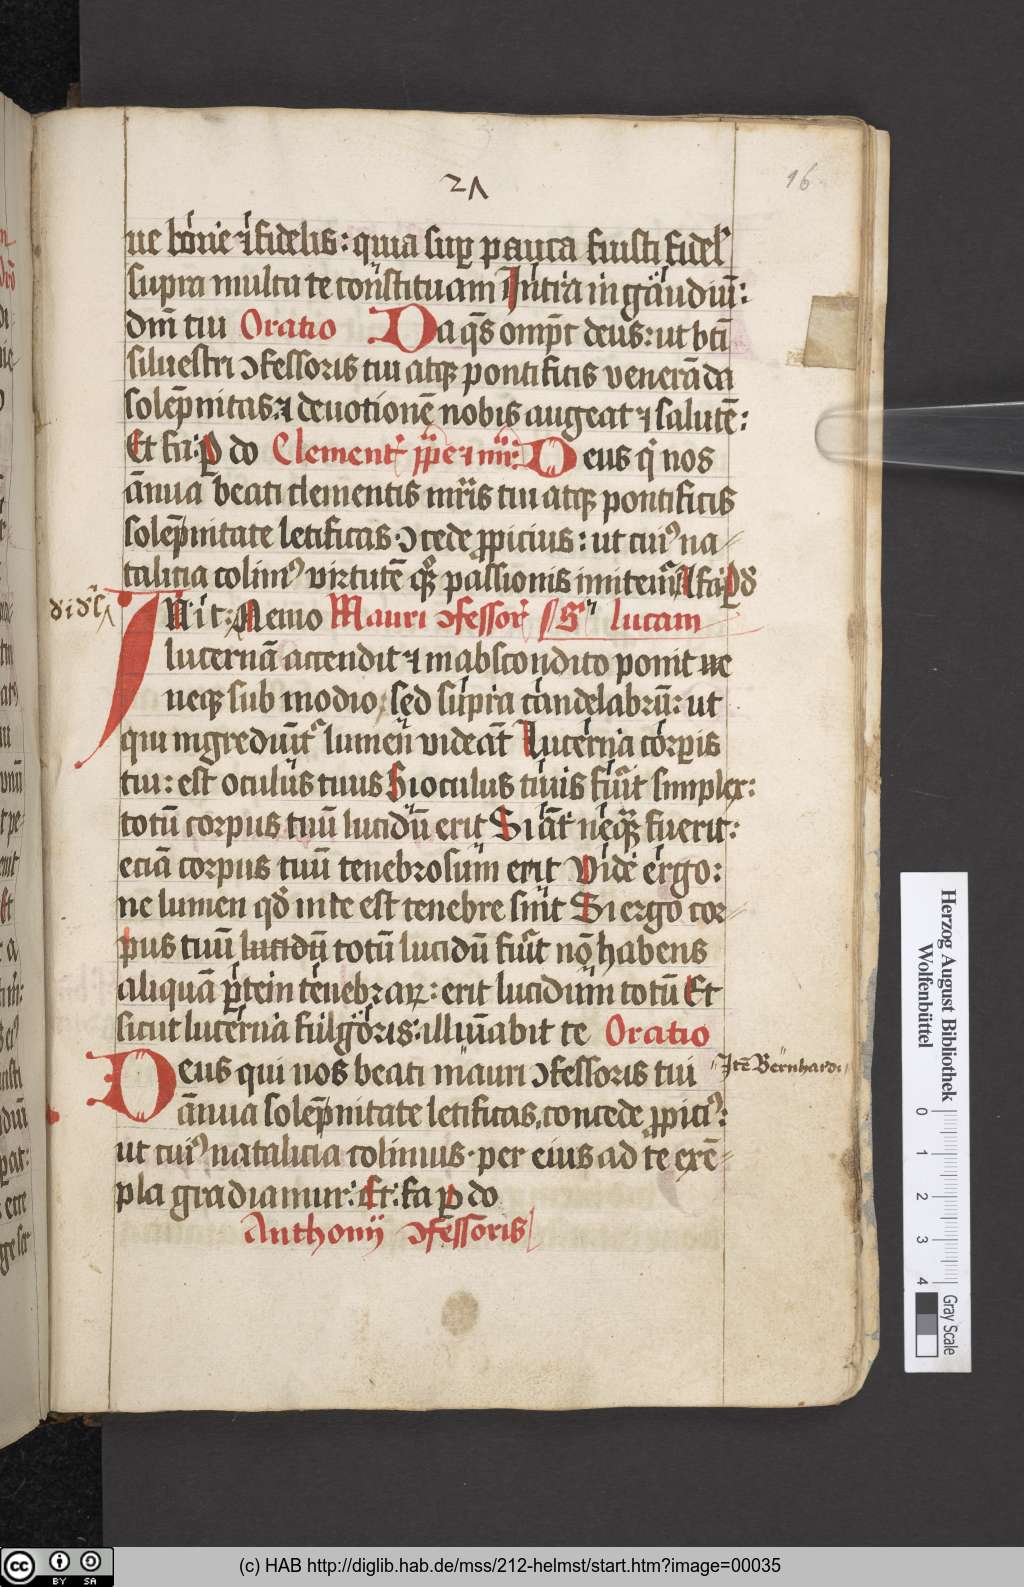 21
16
ue bone ⁊ fidelis: quia suꝑ pauca fuisti fidel'
supra multa te constituam Intra in gaudiū:
dn̄i tui Oratio Da qs̄ omp̄t deus: ut bti
siluestri ↄfessoris tui atqꝫ pontificis venerāda
solēpnitas: ⁊ deuotionē nobis augeat ⁊ salutē:
Et fa: ꝑ do Deus q' nos
ānua beati clementis mr̄is tui atqꝫ pontificis
solēpnitate letificas ↄcede ꝓpicius: ut cui' na-
talicia colim' virtutē qꝫ passionis imitem'
Nemo Mauri ↄfessor' S' lucam
lucernā accendit ⁊ in abscondito ponit ne
neqꝫ sub modio, sed supra candelabrū: ut
qui ingrediūt' lumen videāt Lucerna corpis
tui: est oculus tuus Si oculus tuus fuīt simplex:
totū corpus tuū lucidū erit Si āt neqꝫ fuerit:
eciā corpus tuū tenebrosum erit Vide ergo:
ne lumen qd̄ in te est tenebre sint Si ergo cor-
pus tuū lucidū totū lucidū fuīt nō habens
aliquā ꝑtem tenebraꝝ: erit lucidum totū Et
sicut lucerna fulgoris: illuīabit te Oratio
Deus qui nos beati mauri ↄfessoris tui
Itē Bernhardi
ānua solēpnitate letificas, concede ꝓpici':
ut cui' natalicia colimus. per eius ad te exē-
pla gradiamur: Et: fa ꝑ do
Anthonij ↄfessoris
Herzog August Bibliothek
Wolfenbüttel
0 1 2 3 4
Gray Scale
cc BY SA
(c) HAB http://diglib.hab.de/mss/212-helmst/start.htm?image=00035